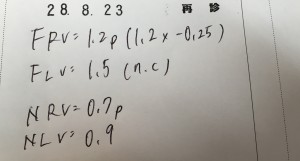 28. 8. 23 再 診
FRV = 1.2p (1.2 x -0.25)
FLV = 1.5 (n.c)
NRV = 0.7p
NLV = 0.9